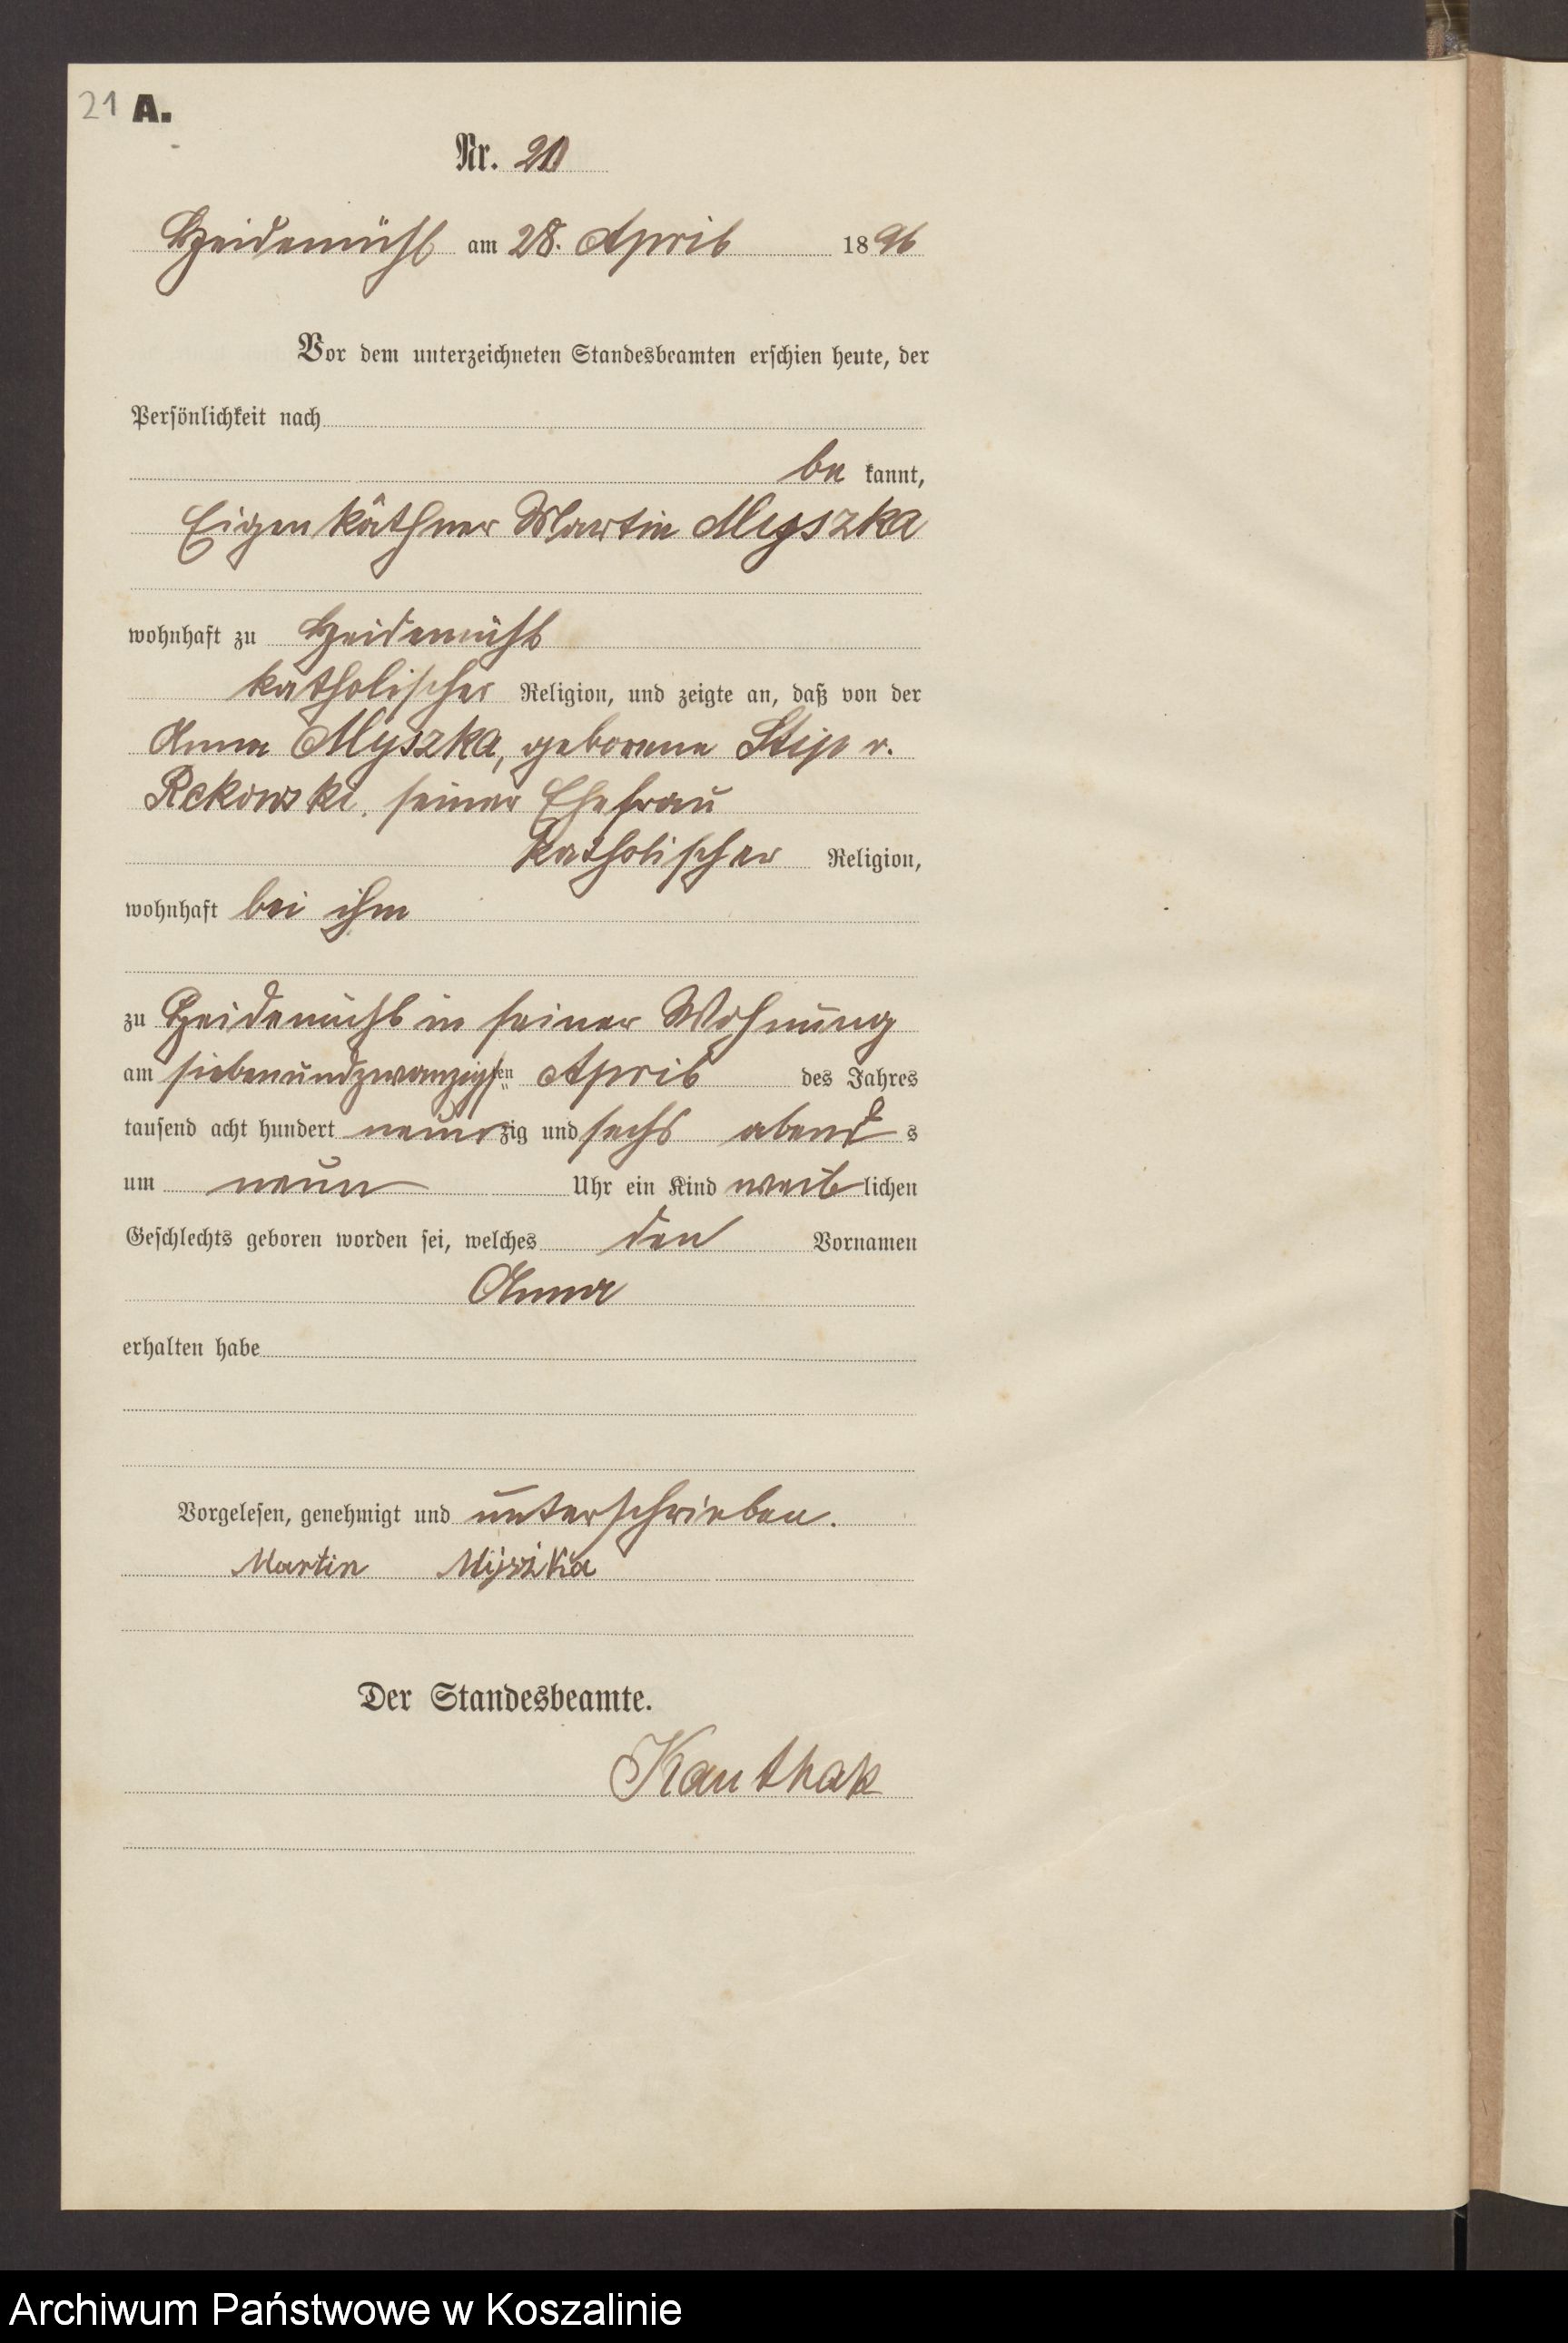 21 A.
Nr. 20
Heidemühl am 28. April 1896
Vor dem unterzeichneten Standesbeamten erschien heute, der
Persönlichkeit nach
be kannt,
Eigenkäthner Martin Myszka
wohnhaft zu Heidemühl
katholischer Religion, und zeigte an, daß von der
Anna Myszka, geborene Stip v.
Rekowski, seiner Ehefrau
katholischer Religion,
wohnhaft bei ihm
zu Heidemühl in seiner Wohnung
am siebenundzwanzigsten April des Jahres
tausend acht hundert neunzig und sechs abends
um neun Uhr ein Kind weiblichen
Geschlechts geboren worden sei, welches den Vornamen
Anna
erhalten habe
Vorgelesen, genehmigt und unterschrieben.
Martin Myszka
Der Standesbeamte.
Kauthak
Archiwum Państwowe w Koszalinie